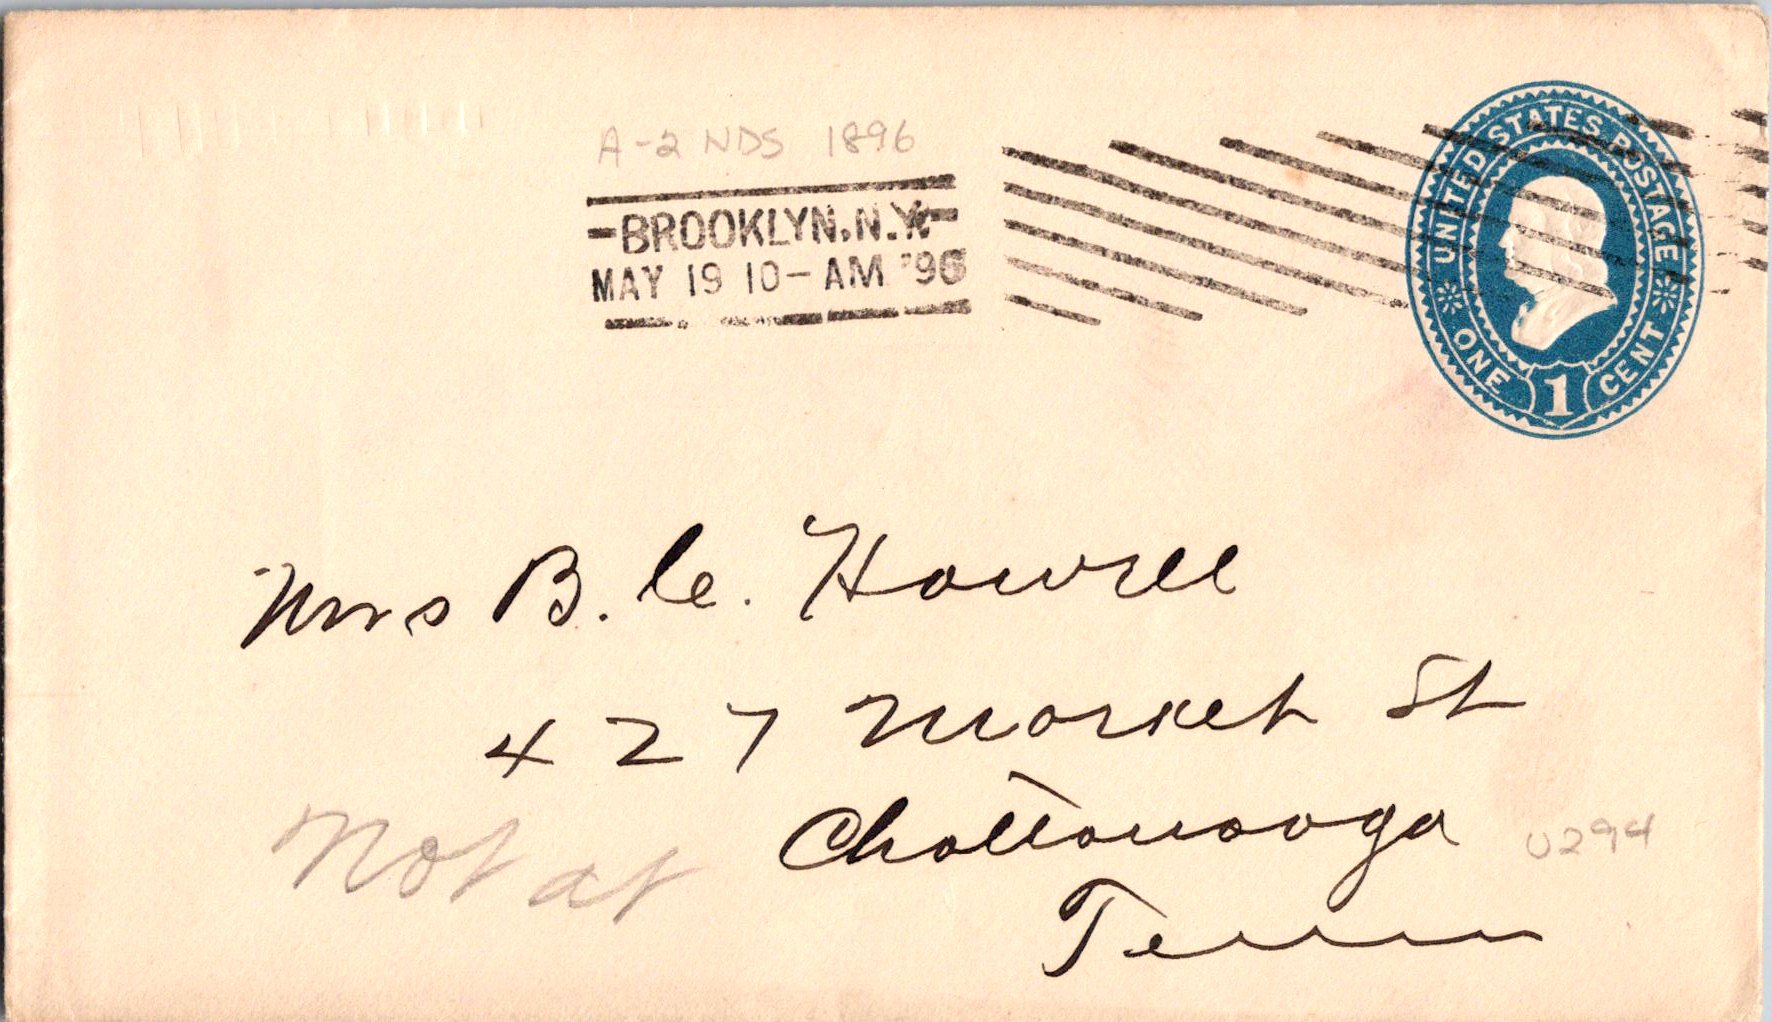 A-2 NDS 1896
BROOKLYN, N.Y.
MAY 19 10-AM '96
UNITED STATES POSTAGE
ONE 1 CENT
Mrs B. C. Howell
427 Market St
Chattanooga
Tenn
Not at
U294